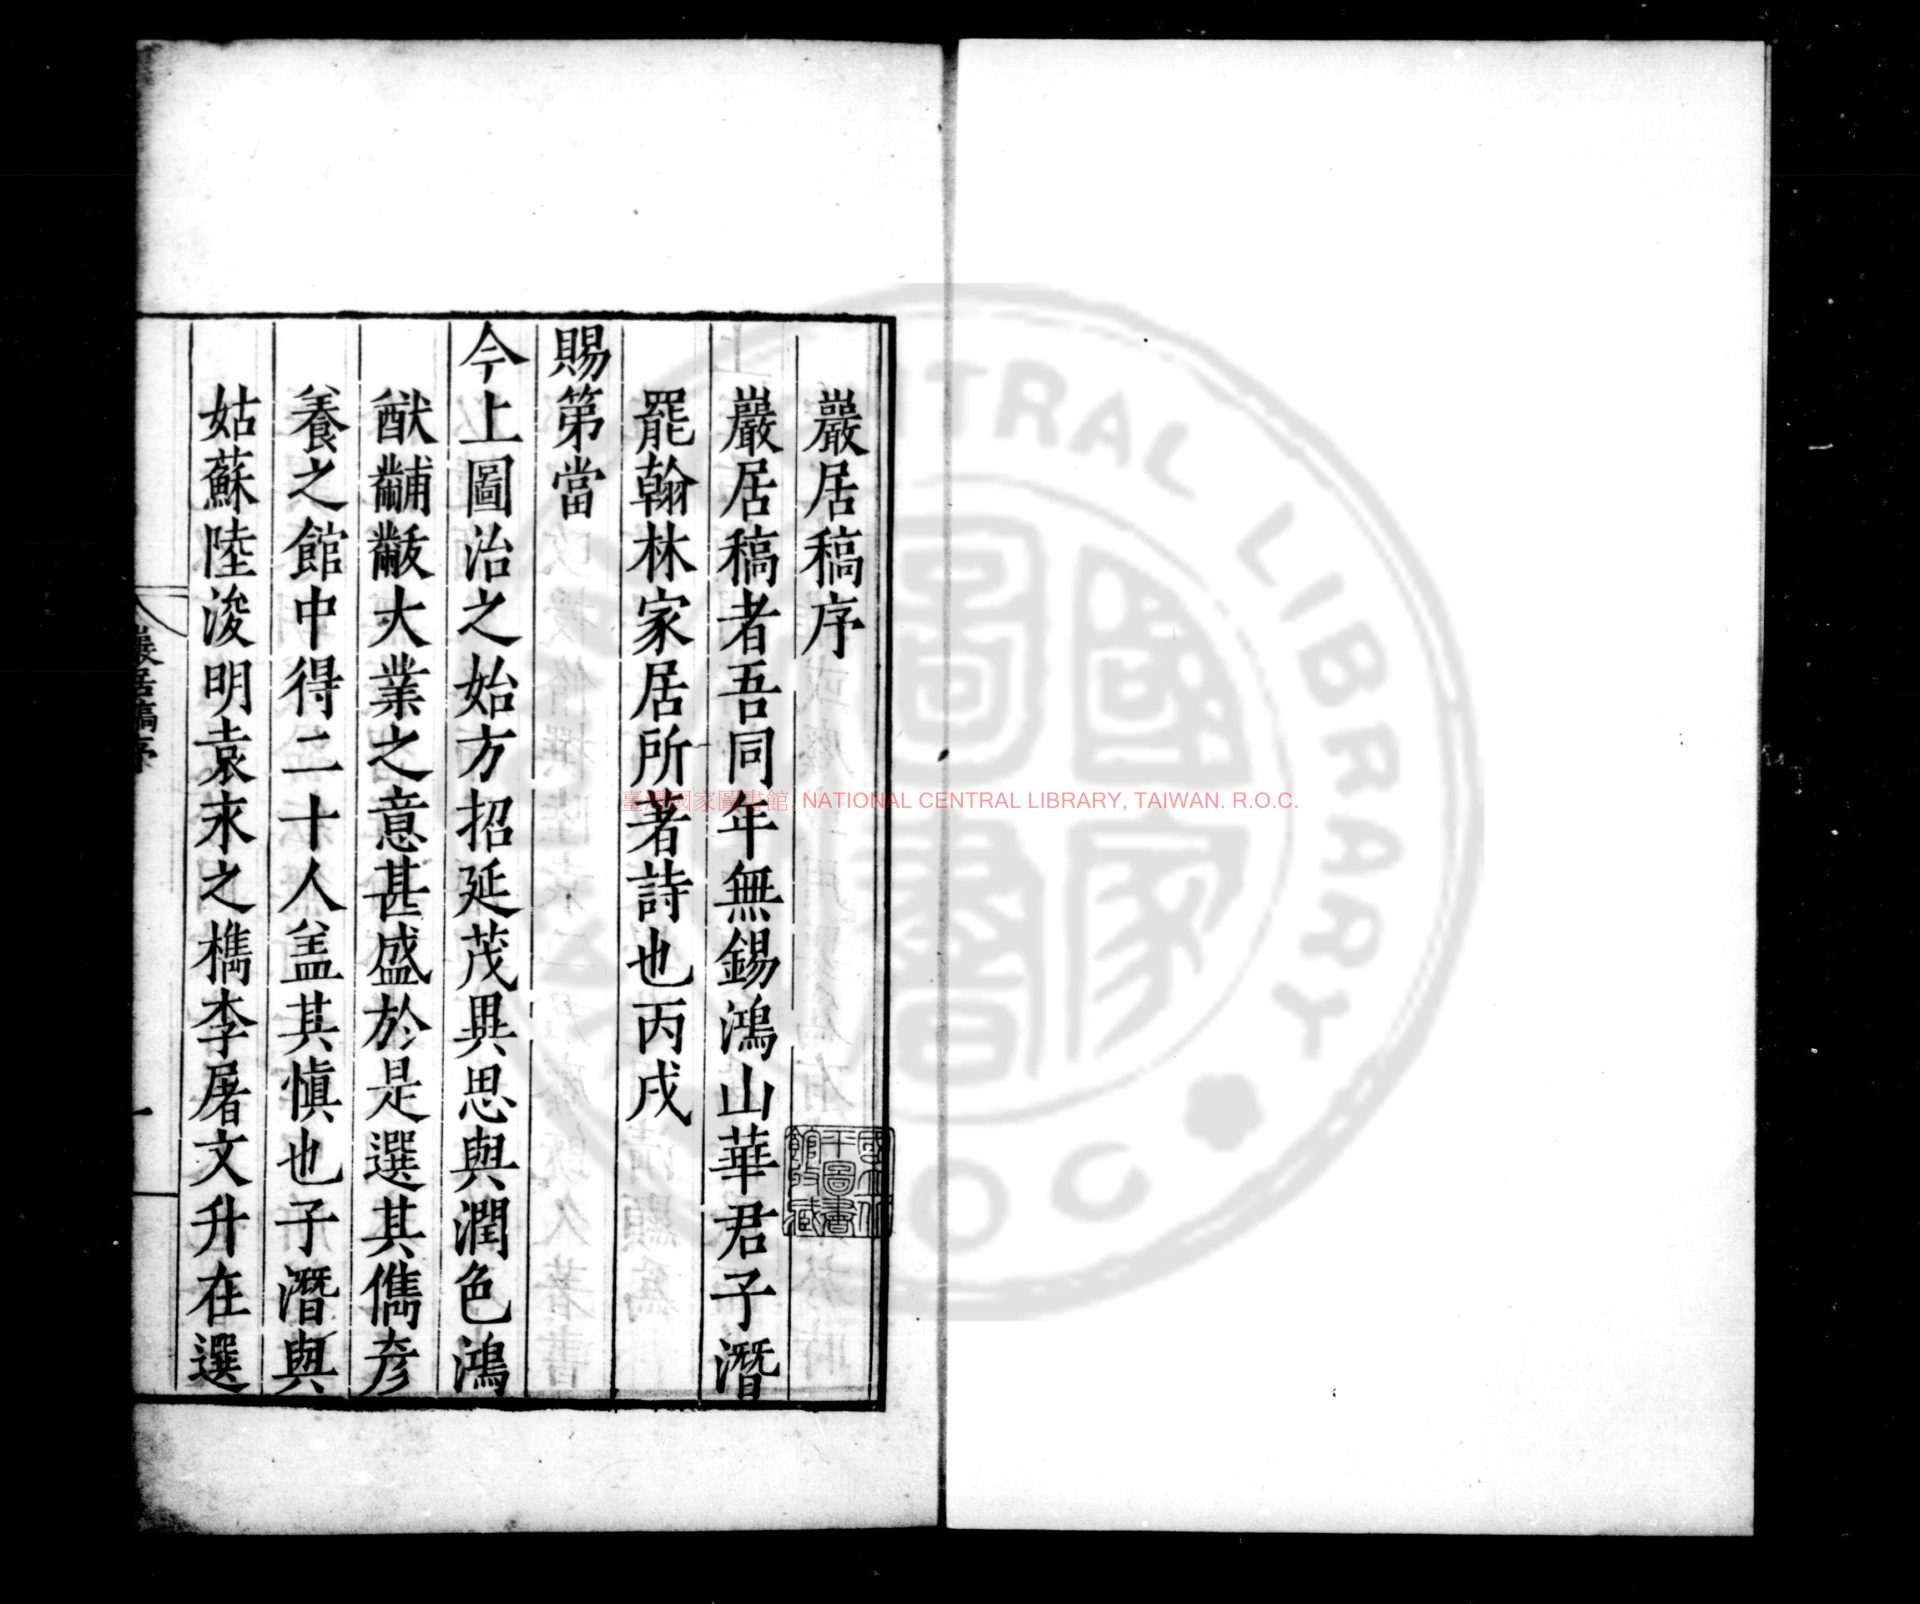 巖居稿序
巖居稿者吾同年無錫鴻山華君子潛
罷翰林家居所著詩也丙戌
賜第當
今上圖治之始方招延茂異思與潤色鴻
猷黼黻大業之意甚盛於是選其儁彥
養之館中得二十人盖其慎也子潛與
姑蘇陸浚明袁永之檇李屠文升在選
巖居稿序
一
國立北
平圖書
館收藏
臺灣國家圖書館, NATIONAL CENTRAL LIBRARY, TAIWAN. R.O.C.